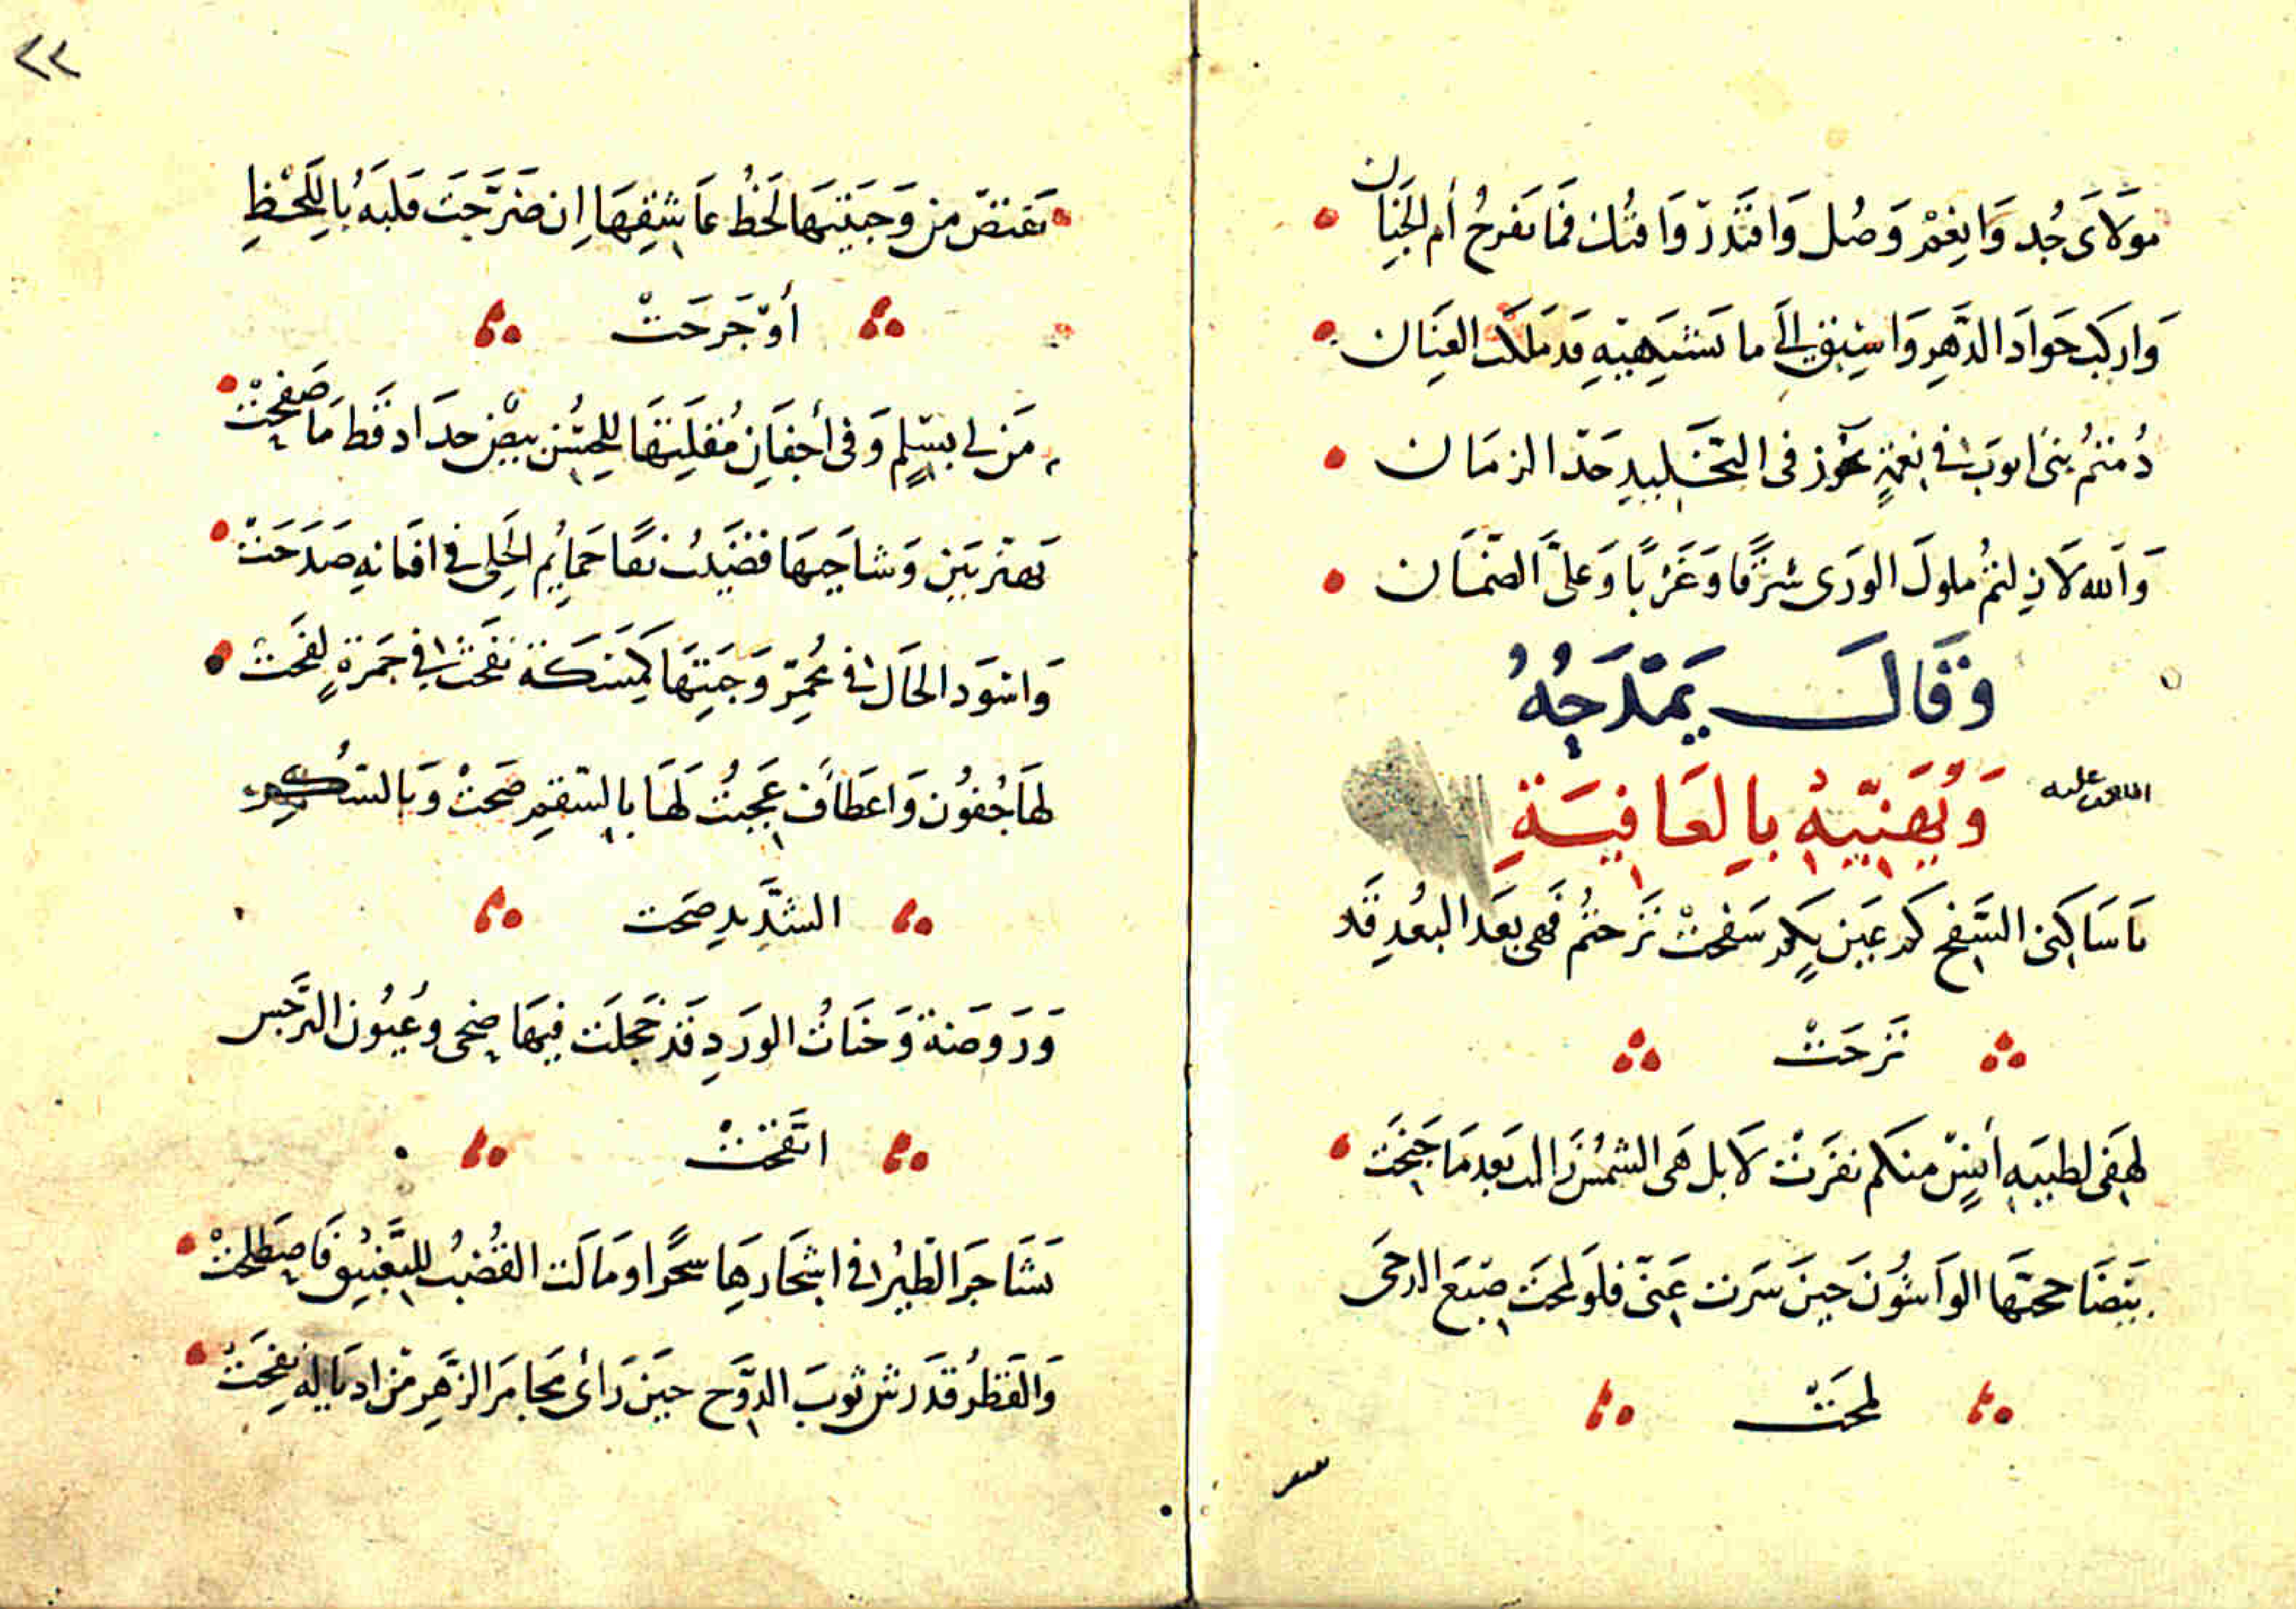 مَولَاىَ جُد وَانِعْمْ وَصُل وَاقتَدرْ وَافتُك فمَا تَفرحُ أم الجَبَان
وَاركَب جَوادَ الدَّهرِ وَاسْتبق إلَى ما تَشتَهِيهِ قد مَلكتَ العِنَان
دُمتمُ بَنى ايوبَ فى نِعمَةٍ تجُوز فى التَّخليدِ حَدّ الزمَان
وَالله لَا زِلتمُ ملوكَ الورَى شرْقًا وَغَرْبًا وَعلىَّ الضّمَان
وَقَالَ يَمْدَحُهُ
وَيُهَنّيهِ بِالعَافِيَةِ
يَا سَاكِنى السَّفحِ كم عَين بِكم سَفحتْ نَزَحتمُ فهى بعَد البُعدِ قَد
نَزحَتْ
لهَفى لظبيَةِ أُنسٍ منكم نفرَتْ لَا بل هَى الشمسُ زَالت بَعد مَا جَنحَت
بَيضَا حجبَّها الوَاشُونَ حينَ سَرت عَنىّ فلو لمحَت صِبغَ الدجَى
لمحَتْ
٢٢
يَقتصّ من وَجنَتيهَا لحَظُ عَاشِقِهَا إن ضَرَّجَت قلبَهُ باللَّحْظِ
أوْ جَرحَتْ
مَن لى بسَلِم وَفى أجفَانِ مُقلتِهَا للحُسْن بيْض حدَاد قَط مَا صَفحَتْ
تَهتز بَين وَشاحَيهَا قضيبُ نقًا حَمايُم الحَلى فى افنَانهِ صَدَحَتْ
وَاسْوَد الخَال فى مُحمرّ وَجنتهَا كمِسكَة نَفحَتْ فى جَمرةٍ لفَحَتْ
لهَا جُفوُن وَاعطَاف عَجبتُ لهَا بِالسّقمِ صَحتْ وَبالسُّكرِ
الشَّدِيدِ صَحت
وَرَوضَة وَجنَاتُ الورَدِ قَد خَجلَت فيهَا ضحى وعُيُون النَّرجس
اتّفحتْ
تَشَاجَرَ الطّيرُ فى اشجَارهَا سحَرًا ومَالَت القُضبُ للتَّعنيق فَاصطَلحتْ
وَالقَطرُ قَد رَش ثوبَ الدّوَح حينَ رَأى مَجامَر الزَّهر من اديَالهِ نفحَتْ